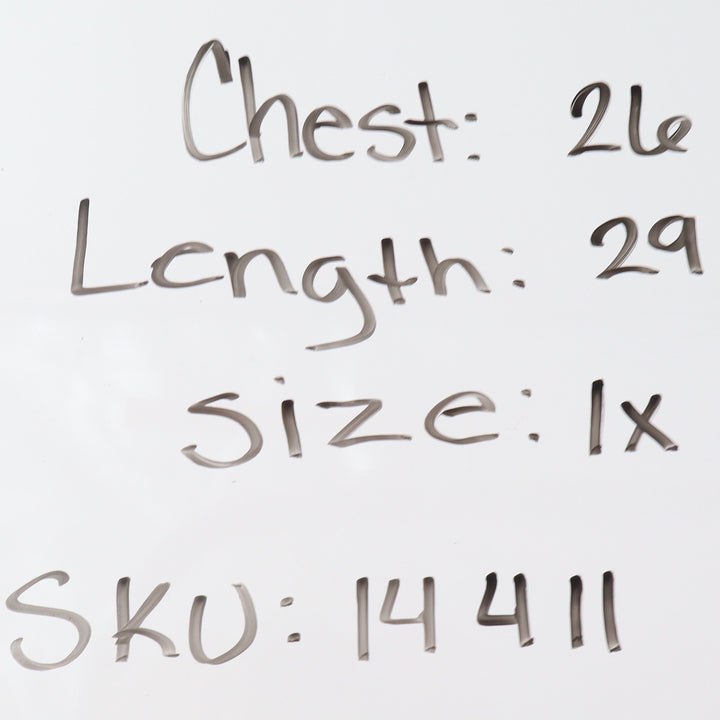 Chest: 26
Length: 29
Size: 1x
SKU: 14411